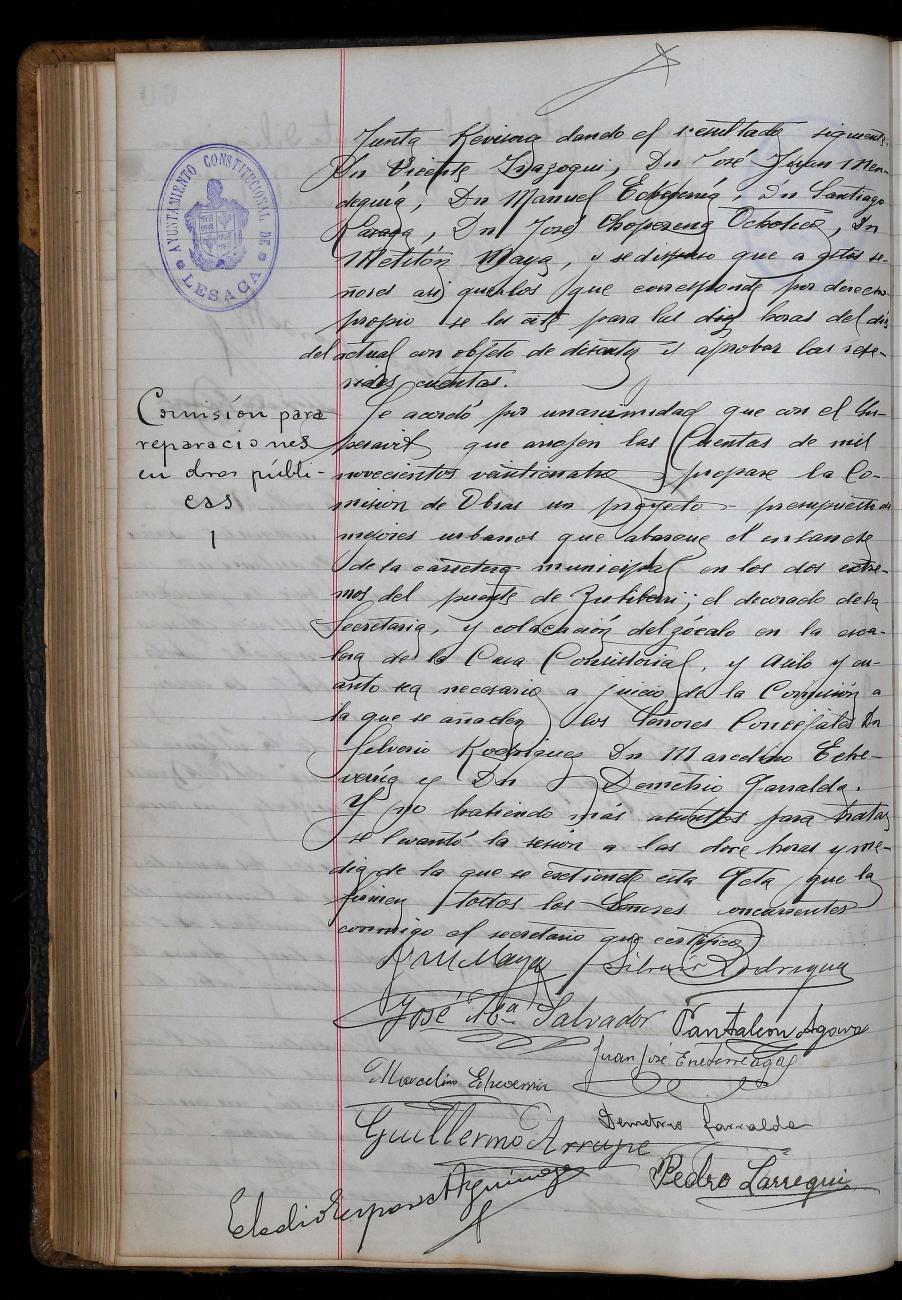 AYUNTAMIENTO CONSTITUCIONAL DE
LESACA
Junta Revisora dando el resultado siguiente
Dn Vicente Dn José Juan Men-
deguía, Dn Manuel Echeverría, Dn Santiago
Dn José Ochoteco, Dn
Melitón Maya, y se dispuso que a estos se-
ñores así que los que corresponde por derecho
propio se les cite para las diez horas del día
del actual con objeto de discutir y aprobar las refe-
ridas cuentas.
Comisión para
reparaciones
en obras públi-
cas
Se acordó por unanimidad que con el Su-
peravit que arrojen las Cuentas de mil
novecientos veinticuatro prepare la Co-
misión de Obras un proyecto - presupuesto de
mejoras urbanas que abarque el ensanche
de la carretera municipal en los dos extre-
mos del puente de el decorado de la
Secretaria, y colocación del zócalo en la esca-
lera de la Casa Consistorial, y Asilo y cu-
anto sea necesario a juicio de la Comisión a
la que se añaden los Señores Concejales Dn
Silverio Rodriguez Dn Marcelino Eche-
verría y Dn Demetrio Garralda.
Y no habiendo más asuntos para tratar
se levantó la sesión a las doce horas y me-
dia de la que se extiende esta Acta que la
firman todos los Señores concurrentes
conmigo el secretario que certifico
Maya Silverio Rodriguez
José Ma Salvador Pantaleon
Juan José
Marcelino Echeverria
Demetrio Garralda
Guillermo Arrupe
Pedro Larrequi
Eladio Esparza